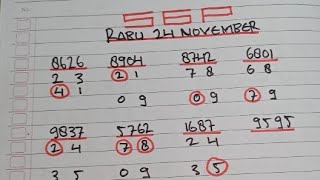 SSP
RABU 24 NOVEMBER
8626 8904 8742 6801
2 3 2 1 7 8 6 8
4 1 0 9 0 9 7 9
9837 5762 1687 9595
2 4 7 8 2 4
3 5 0 9 3 5